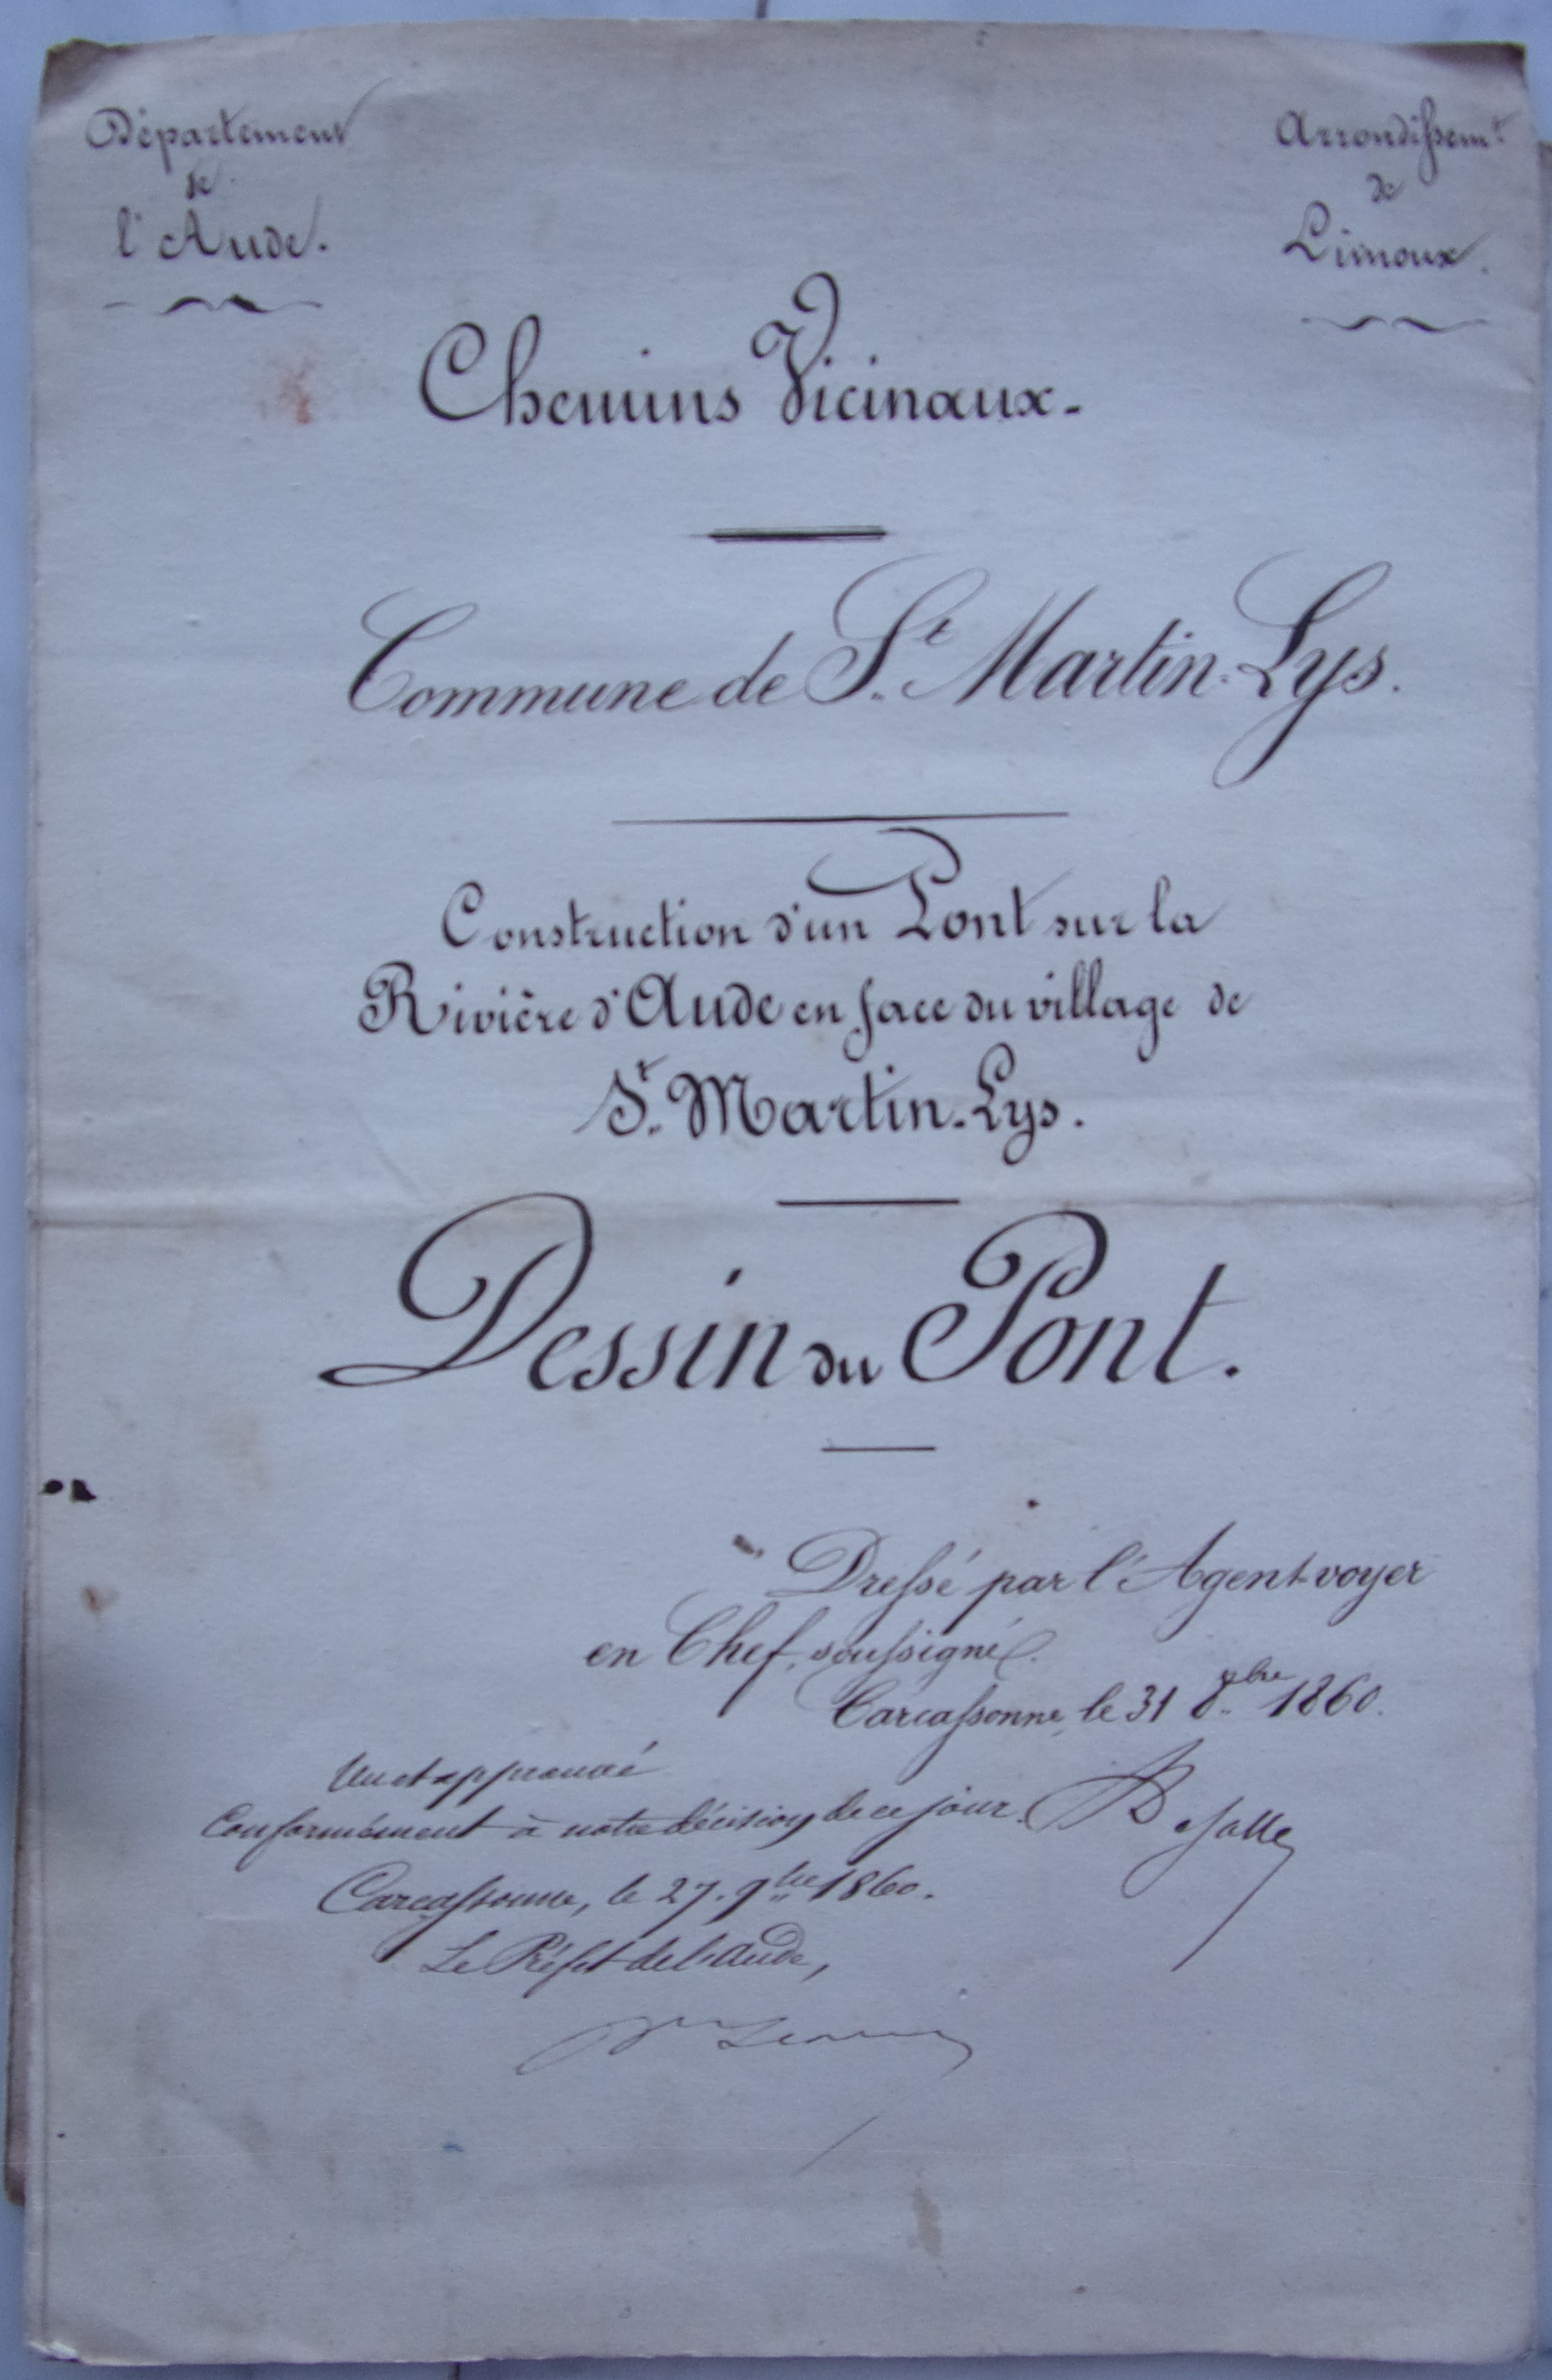 Département
de
l'Aude.
Arrondissem.t
de
Limoux.
Chemins Vicinaux.
Commune de St. Martin-Lys.
Construction d'un Pont sur la
Rivière d'Aude en face du village de
St. Martin-Lys.
Dessin du Pont.
Dressé par l'Agent-voyer
en Chef, soussigné.
Carcassonne, le 31 8.bre 1860.
Vu et approuvé
Conformément à notre décision de ce jour.
Carcassonne, le 27. 9bre 1860.
Le Préfet de l'Aude,